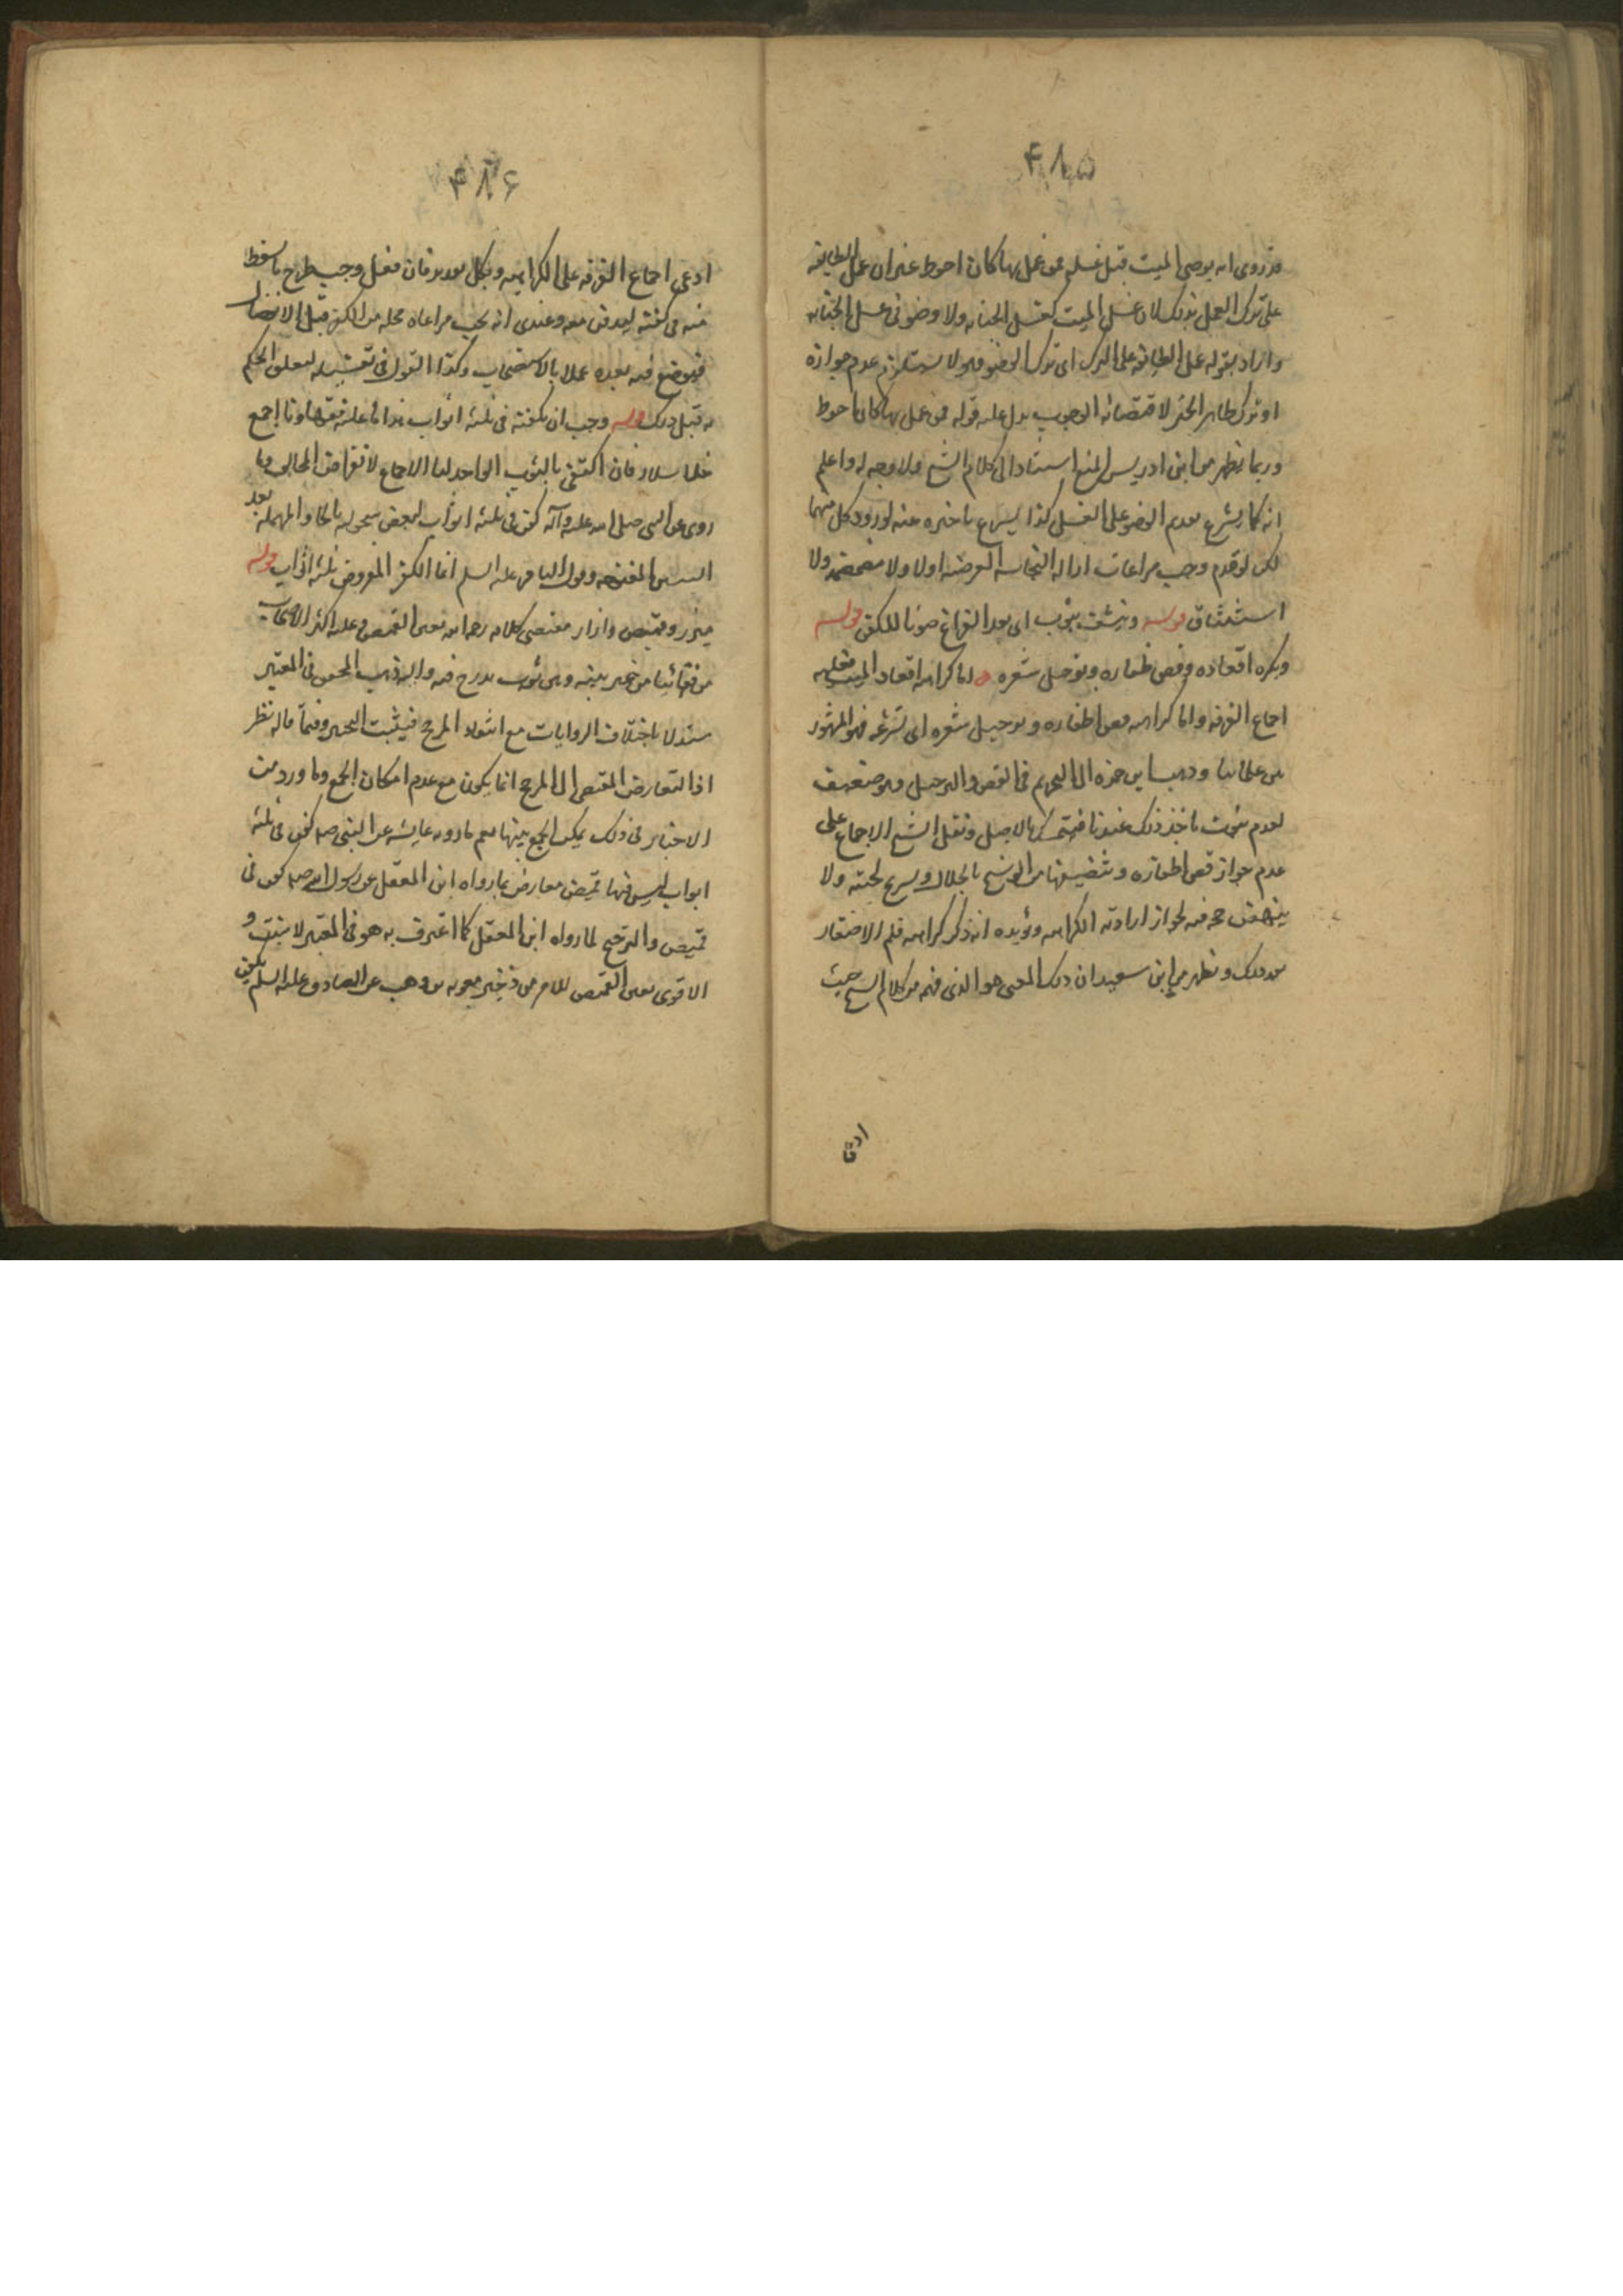 ۴۸۵
قد روی انه یوضی المیت قبل غسله فمن عمل بها کان احوط غیر ان عمل الطایفه
علی ترک العمل بذلک لان غسل المیت کغسل الجنابه ولا وضو فی غسل الجنابه
واراد بقوله عمل الطایفه علی الترک ای ترک الوضو وهو لا یستلزم عدم جوازه
او ترک ظاهر الخبر لاقتضائه الوجوب یدل علیه قوله فمن عمل بها کان احوط
وربما یظهر من ابن ادریس المنع استنادا الی کلام الشیخ ولا وجه له واعلم
انه کما یشرع تقدیم الوضو علی الغسل کذا یشرع تاخیره عنه لورود کل منهما
لکن لو قدم وجب مراعات ازاله النجاسه العرضیه اولا ولا مضمضه ولا
استنشاق قوله وینشف بثوب ای بعد الفراغ صونا للکفن قوله
ویکره اقعاده وقص ظفاره وترجیل شعره اما کراهه اقعاد المیت فعلیه
اجماع الفرقه واما کراهه قص اظفاره وترجیل شعره ای تسریحه فهو المشهور
بین علمائنا وذهب ابن حمزه الی التحریم فی القص والترجیل وهو ضعیف
لعدم ثبوت ماخذ ذلک عندنا فیتمسک بالاصل ونقل الشیخ الاجماع علی
عدم جواز قص اظفاره وتنظیفها من الوسخ بالخلال وتسریح لحیته ولا
ینهض حجه فیه لجواز ارادته الکراهه ویؤیده انه ذکر کراهه قلم الاظفار
بعد ذلک ویظهر من ابن سعید ان ذلک المعنی هو الذی فهمه من کلام الشیخ حیث
ادعی
۴۸۶
ادعی اجماع الفرقه علی الکراهیه وبکل تقدیر فان فعل وجب طرح ما سقط
منه فی کفنه لیدفن معه وعندی انه یجب مراعاه محله من الکفن قبل الانفصال
فیوضع فیه بعده عملا بالاستصحاب وکذا القول فی تغسیله لتعلق الحکم
به قبل ذلک قوله وجب ان یکفنه فی ثلثه اثواب هذا ما علیه فقهاؤنا اجمع
خلا سلار فانه اکتفی بالثوب الواحد لنا الاجماع لانقراض المخالف وما
روی عن النبی صلی الله علیه وآله کفن فی ثلثه اثواب بیض سحولیه بالحاء المهمله بعد
السین المفتوحه وقول الباقر علیه السلم انما الکفن المفروض ثلثه اثواب قوله
میزر وقمیص وازار مقتضی کلامه رحمه الله تعین القمیص وعلیه اکثر الاصحاب
من فقهائنا من خیر بینه وبین ثوب یدرج فیه والیه ذهب المحقق فی المعتبر
مستدلا باختلاف الروایات مع انتفاء المرجح فیثبت التخییر وفیما قاله نظر
اذ التعارض المقتضی الی المرجح انما یکون مع عدم امکان الجمع وما ورد من
الاخبار فی ذلک یمکن الجمع بینها نعم ما روته عایشه عن النبی صلعم کفن فی ثلثه
اثواب لیس فیها قمیص معارض بما رواه ابن المغفل عن رسول الله صلعم کفن فی
قمیص والترجیح لما رواه ابن المغفل کما اعترف به هو فی المعتبر لانه مثبت و
الاقوی تعین القمیص للامر به فی خبر معویه بن وهب عن الصادق علیه السلم یکفن